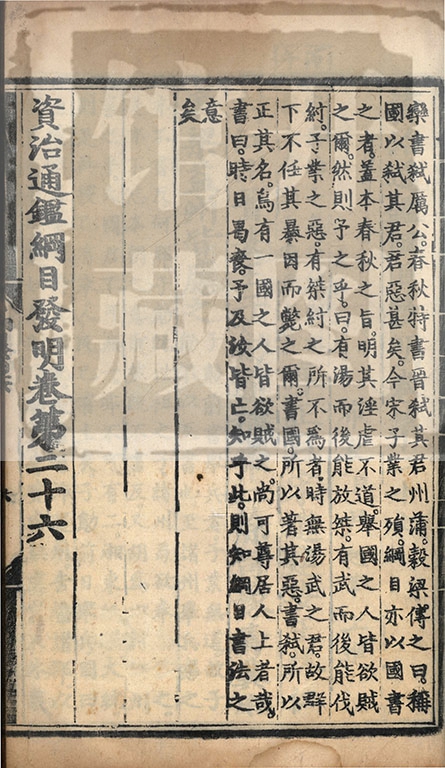 欒書弑厲公春秋特書晉弑其君州蒲穀梁傳之曰稱
國以弑其君君惡甚矣今宋子業之殞綱目亦以國書
之者蓋本春秋之旨明其淫虐不道舉國之人皆欲賊
之爾然則予之乎曰有湯而後能放桀有武而後能伐
紂子業之惡有桀紂之所不為者時無湯武之君故群
下不任其暴因而斃之爾書國所以著其惡書弑所以
正其名烏有一國之人皆欲賊之尚可尊居人上者哉
書曰時日曷喪予及汝皆亡知乎此則知綱目書法之
意矣
資治通鑑綱目發明卷第二十六